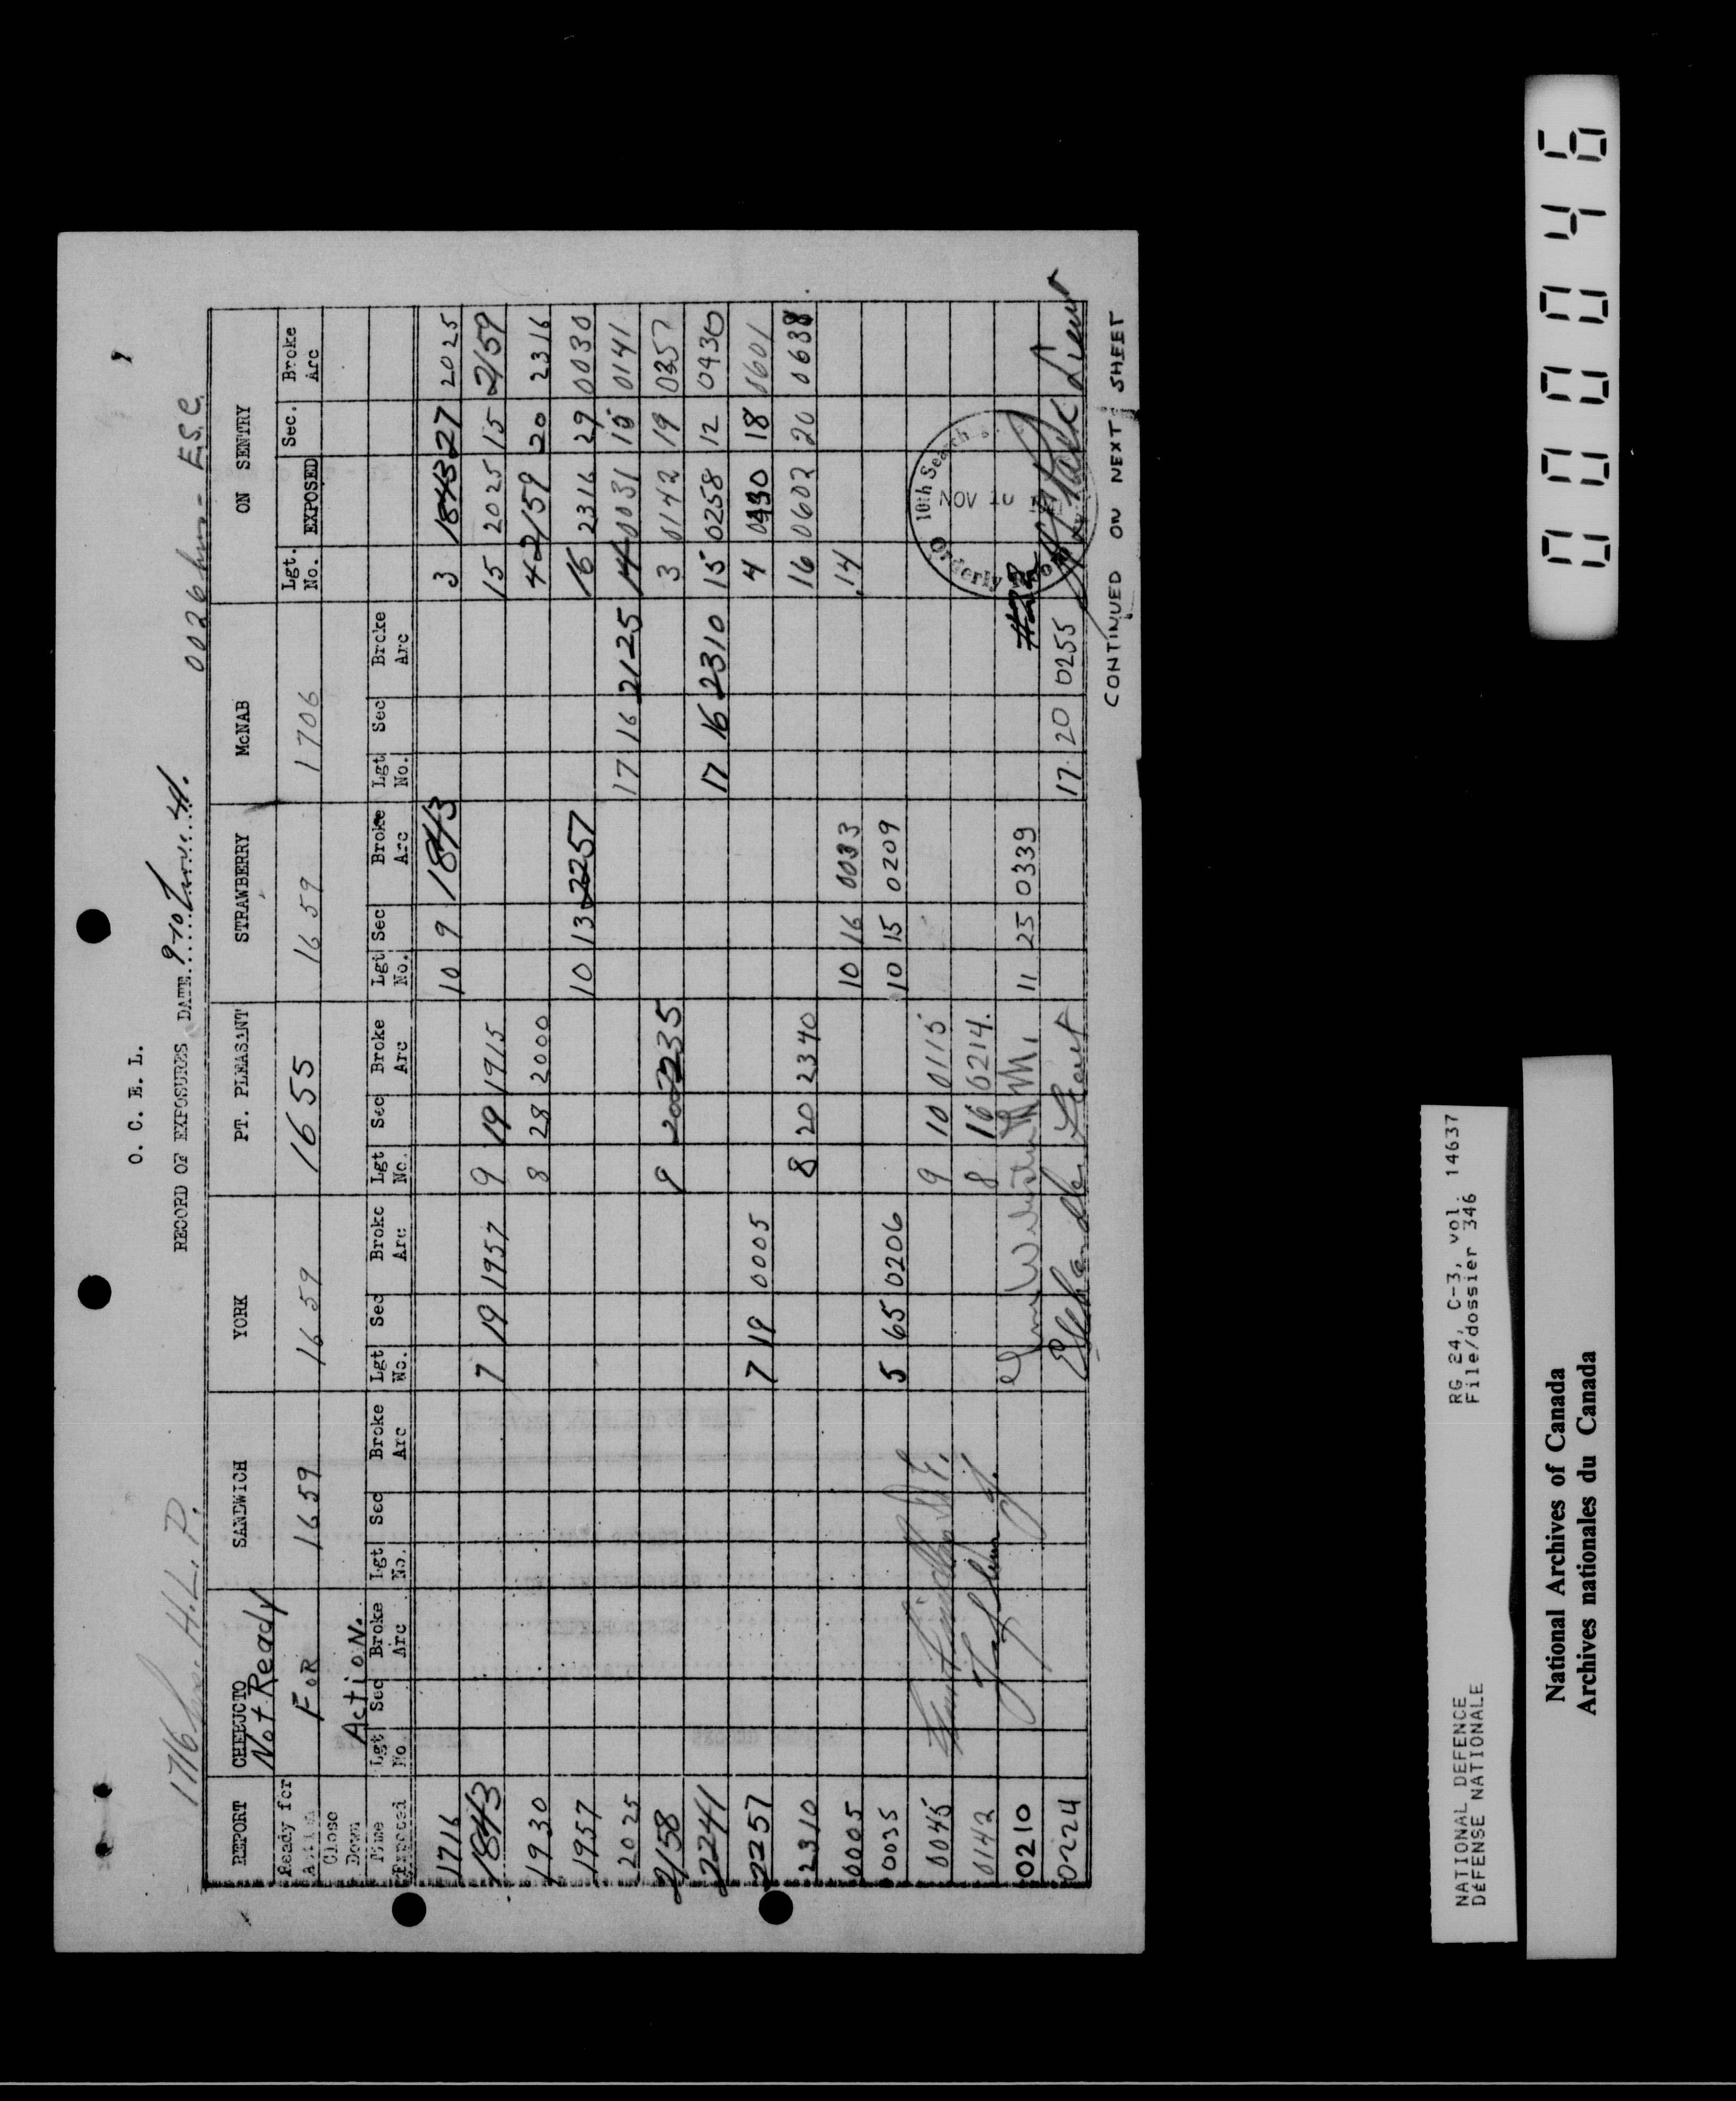 O. C. E. L.
RECORD OF EXPOSURES DATE 9-10 Nov. 41.
1716 hrs. H.L.P.
0026 hrs - E.S.C.
REPORT CHEBUCTO SANDWICH YORK PT. PLEASANT STRAWBERRY McNAB ON SENTRY
Ready for Action Not Ready FOR Action. 1659 1659 1655 1659 1706
Lgt. No. EXPOSED Sec. Broke Arc
Close Down
Time Exposed Lgt No. Sec Broke Arc Lgt No. Sec Broke Arc Lgt No. Sec Broke Arc Lgt No. Sec Broke Arc Lgt No. Sec Broke Arc Lgt No. Sec Broke Arc
1716 10 9 1843 3 1843 27 2025
1843 7 19 1957 9 19 1915 15 2025 15 2159
1930 8 28 2000 4 2159 20 2316
1957 10 13 2257 16 2316 29 0030
2025 17 16 2125 14 0031 15 0141
2158 20 2235 3 0142 19 0357
2241 17 16 2310 15 0258 12 0430
2257 7 18 0005 4 0430 18 0601
2310 8 20 2340 16 0602 20 0638
0005 10 16 0033 14
0035 5 65 0206 10 15 0209
0045 9 10 0115
0142 8 16 0214.
0210 11 25 0339
0224 17 20 0255
10th Search
NOV 10
Orderly
Lieut
CONTINUED ON NEXT SHEET
000046
NATIONAL DEFENCE RG 24, C-3, vol. 14637
DéFENSE NATIONALE File/dossier 346
National Archives of Canada
Archives nationales du Canada